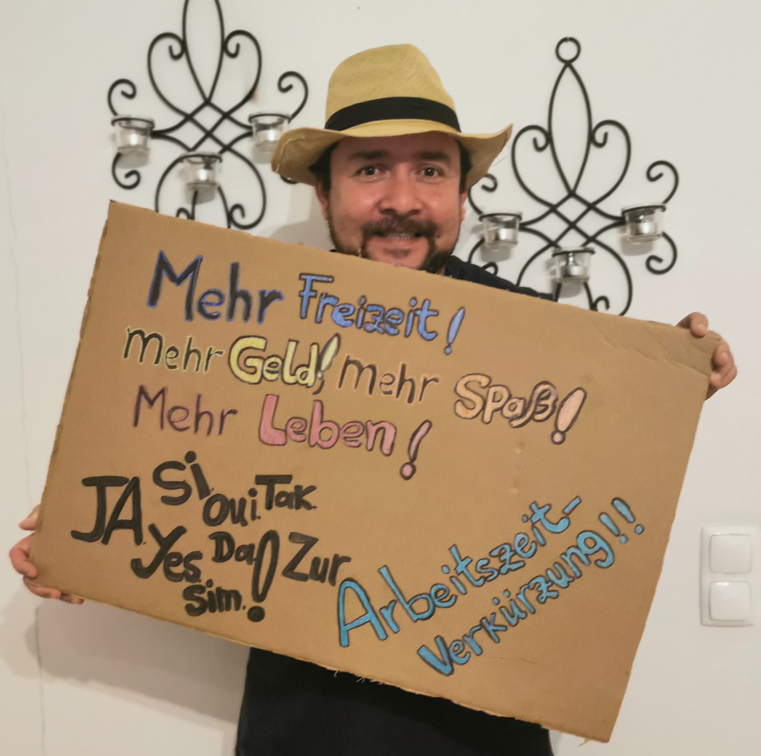 Mehr Freizeit!
mehr Geld! mehr Spaß!
Mehr Leben!
JA. Si. Oui. Tak.
Yes. Da! Zur
Sim.
Arbeitszeit-
verkürzung!!